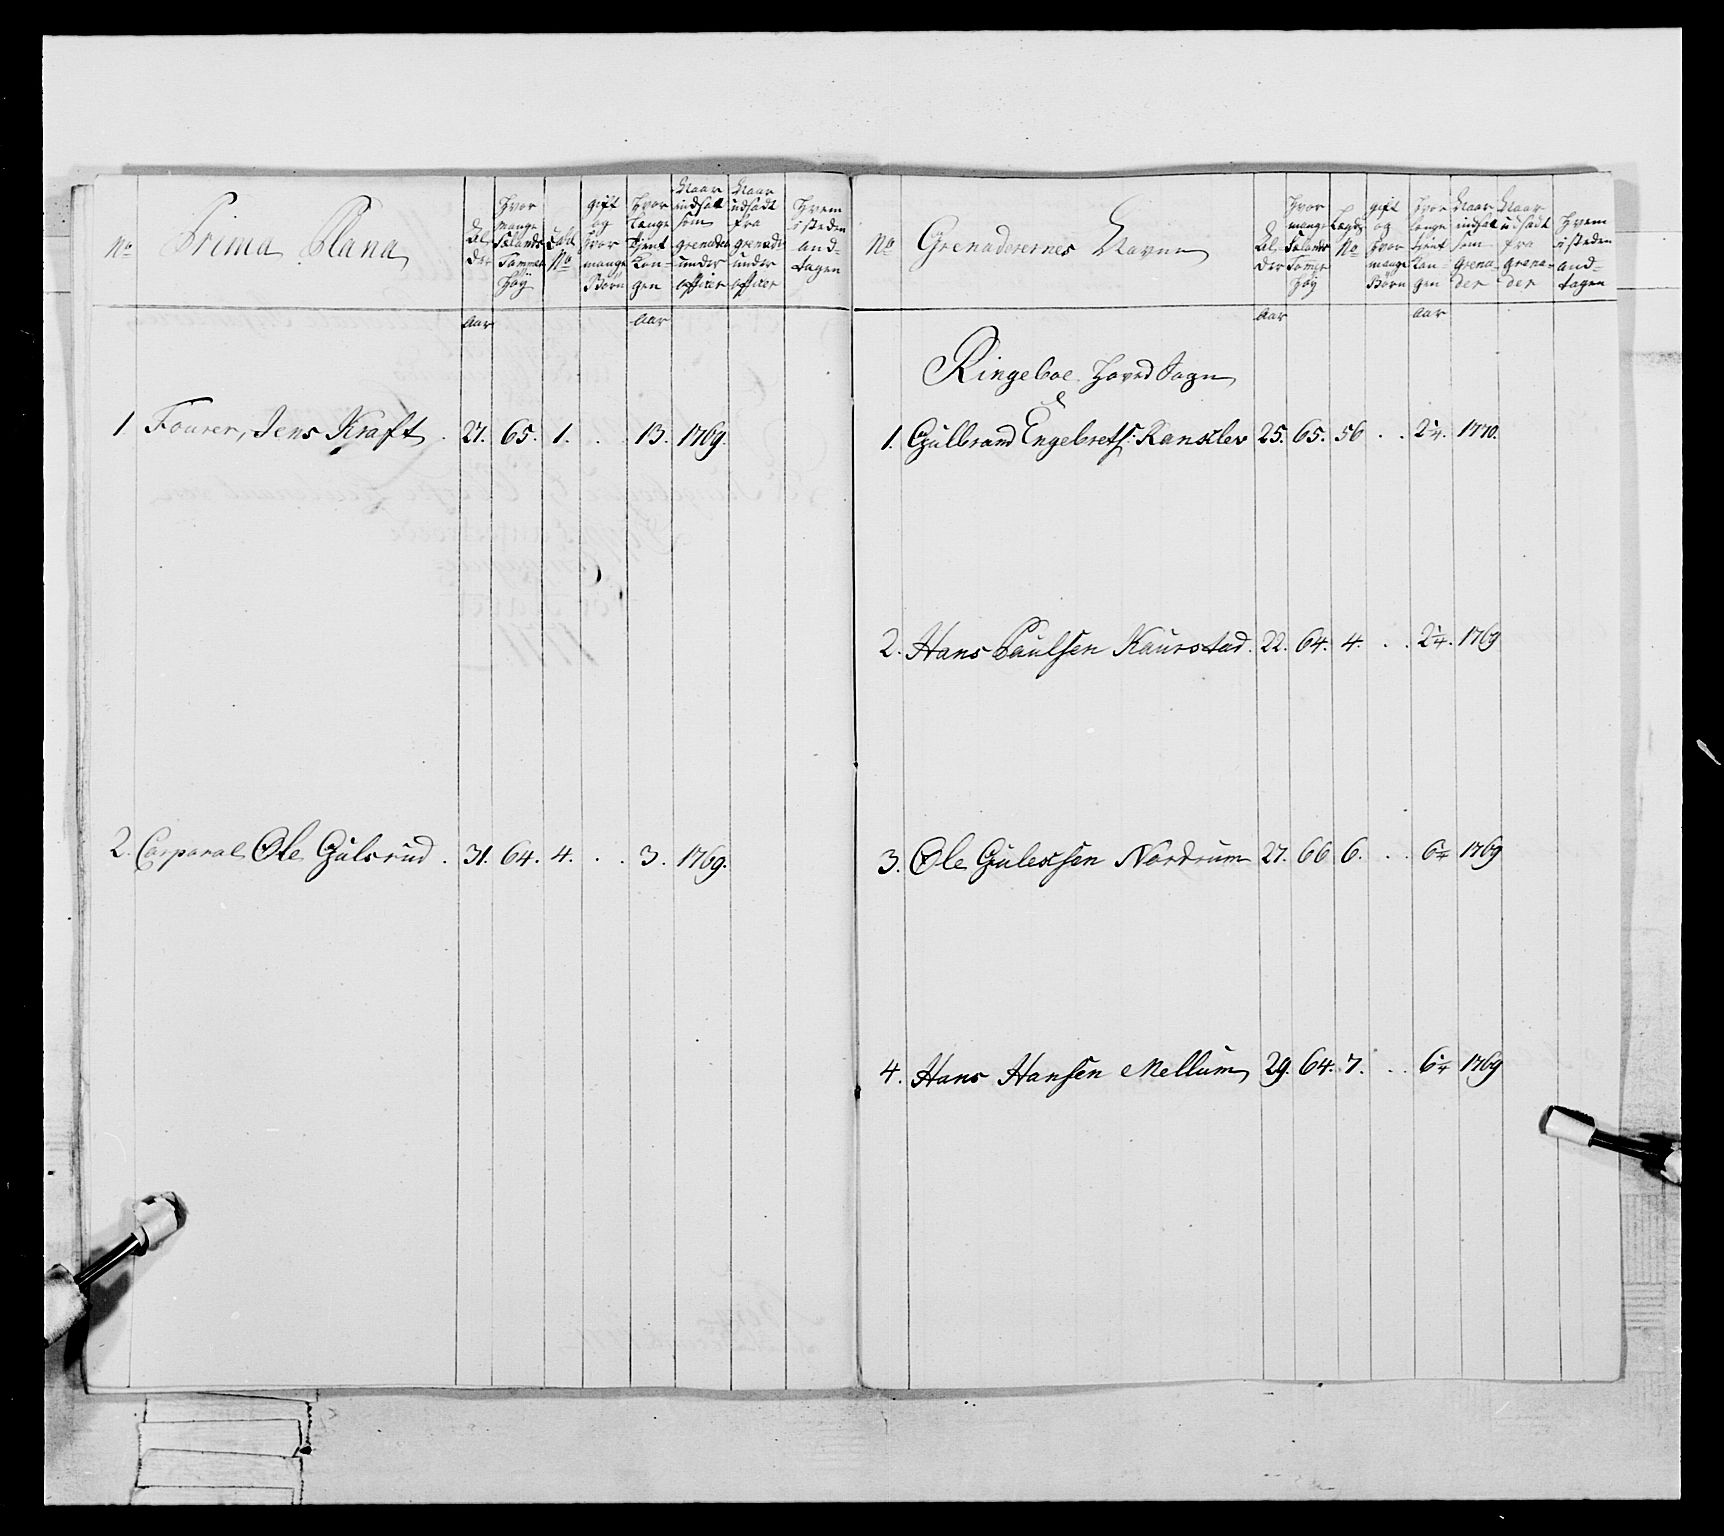 No
Prima Plana
Al
der
Hvor
mange
Sælands
Tommer
Høy
No
gift
og
hvor
mange
Børn
Hvor
Længe
tjent
Kon-
gen
Naar
indsatt
som
grenader
under
officer
Naar
udsadt
fra
grenader
under
officer
Hvem
i steden
and-
tagen
Aar
Aar
1 Fourer, Jens Kraft . 27. 65. 1. . . 13. 1769.
2. Corporal Ole Gulsrud . 31. 64. 4. . . 3. 1769.
No
Grenaderernes Navne
Al
der
Hvor
mange
Sælands
Tomer
Høy
Lægds
No
gift
og
hvor
mange
Børn
Hvor
længe
tjent
Kon-
gen
Naar
indsatt
som
Grena-
der
Naar
udsadt
fra
Grena-
der
Hvem
i steden
and-
tagen
Aar
Aar
Ringeboe Hoved Sogn
1. Gulbrand Engebrets: Ranslev 25. 65. 56 . . 2¼. 1770.
2. Hans Paulsen Kaurstad. 22. 64. 4. . . 2¼. 1769
3. Ole Gulessen Nordrum 27. 66 6. . . 6¼ 1769
4. Hans Hansen Mellum 29. 64. 7. . . 6¼ 1769